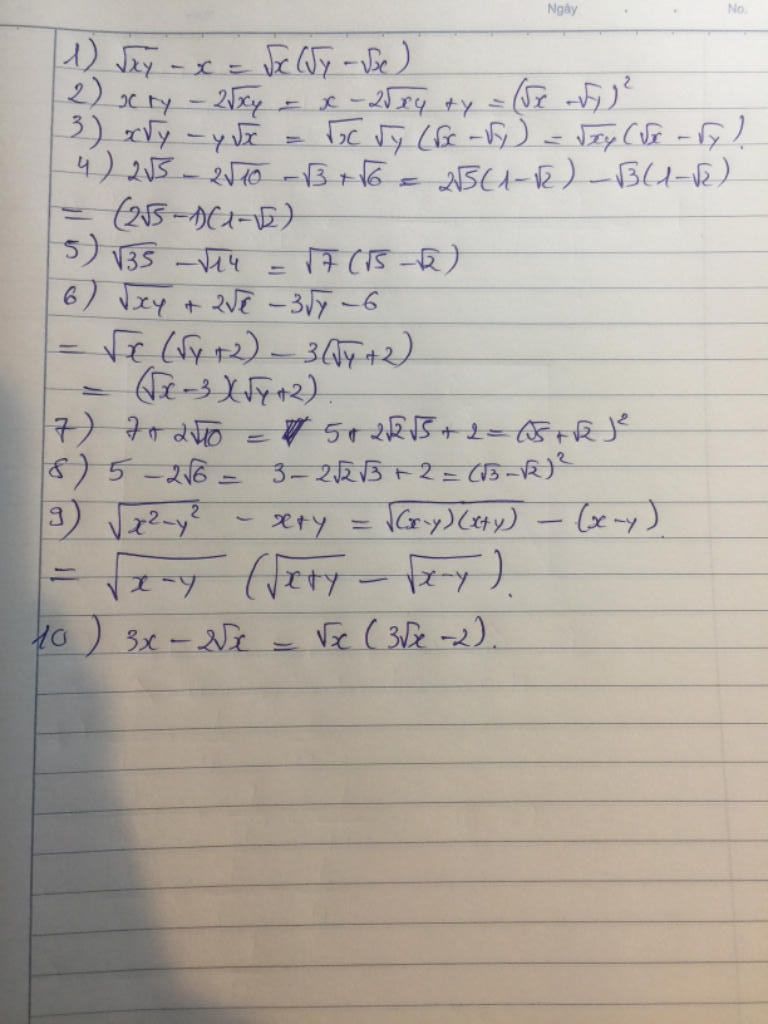 Ngày . . No.
1) √xy - x = √x(√y - √x)
2) x+y - 2√xy = x - 2√xy + y = (√x - √y)²
3) x√y - y√x = √x √y (√x - √y) = √xy (√x - √y).
4) 2√5 - 2√10 - √3 + √6 = 2√5(1-√2) - √3(1-√2)
= (2√5-1)(1-√2)
5) √35 - √14 = √7 (√5 - √2)
6) √xy + 2√x - 3√y - 6
= √x (√y+2) - 3(√y+2)
= (√x-3)(√y+2).
7) 7+2√10 = 5+2√2√5+2 = (√5+√2)²
8) 5 - 2√6 = 3 - 2√2√3 + 2 = (√3-√2)²
9) √x²-y² - x+y = √(x-y)(x+y) - (x-y).
= √x-y (√x+y - √x-y).
10) 3x - 2√x = √x (3√x - 2).